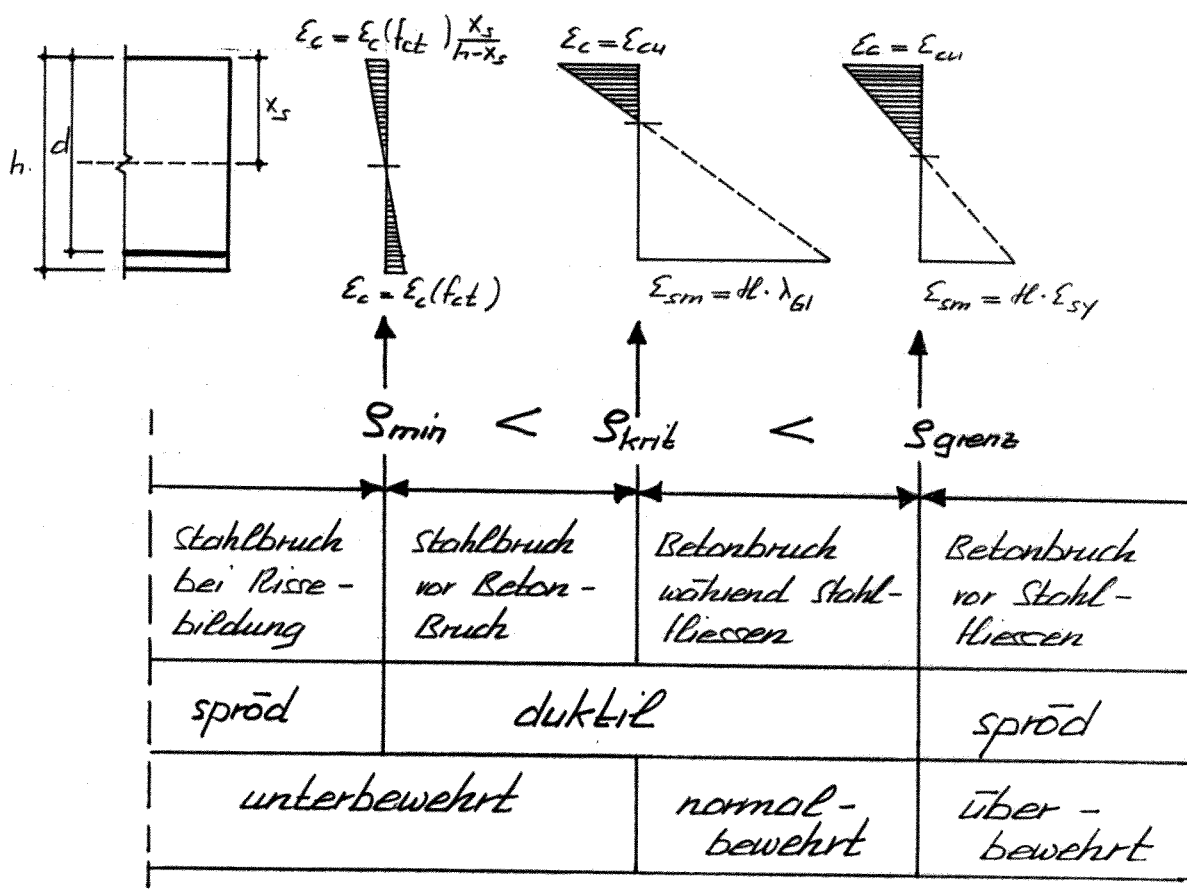 εc = εc(fct) xs/(h-xs)
εc = εcu
εc = εcu
h
d
xs
εc = εc(fct)
εsm = ϰ · λGl
εsm = ϰ · εsy
ρmin < ρkrit < ρgrenz
Stahlbruch
bei Risse-
bildung
Stahlbruch
vor Beton-
Bruch
Betonbruch
während Stahl-
fliessen
Betonbruch
vor Stahl-
fliessen
spröd
duktil
spröd
unterbewehrt
normal-
bewehrt
über-
bewehrt